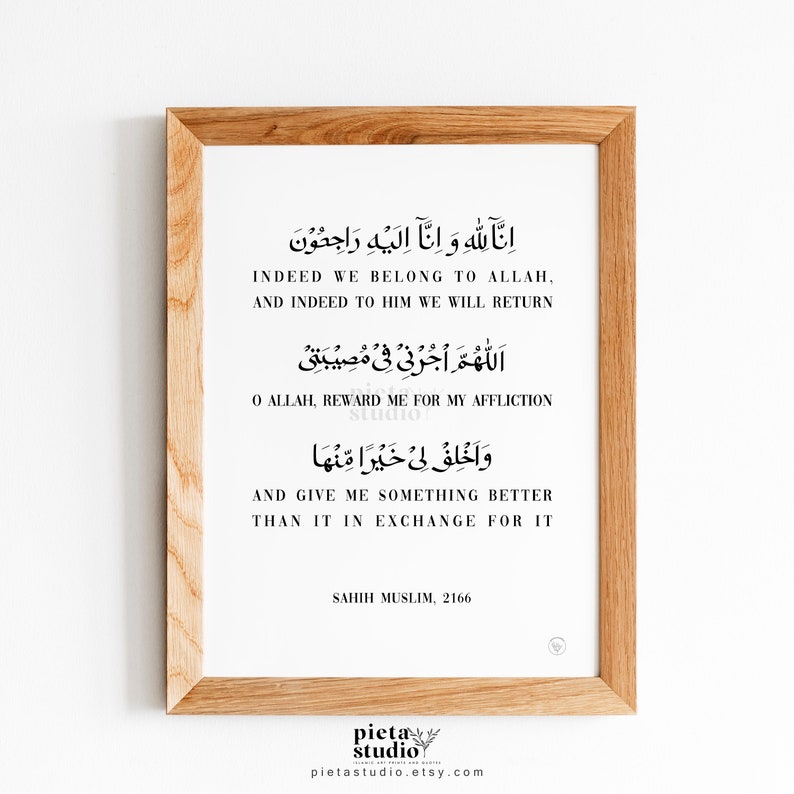 اِنَّآ لِلّٰهِ وَ اِنَّآ اِلَيْهِ رَاجِعُوْنَ
INDEED WE BELONG TO ALLAH,
AND INDEED TO HIM WE WILL RETURN
اَللّٰهُمَّ اْجُرْنِيْ فِيْ مُصِيْبَتِيْ
pieta
studio
O ALLAH, REWARD ME FOR MY AFFLICTION
وَاَخْلِفْ لِيْ خَيْرًا مِّنْهَا
AND GIVE ME SOMETHING BETTER
THAN IT IN EXCHANGE FOR IT
SAHIH MUSLIM, 2166
pieta
studio
ISLAMIC ART PRINTS AND QUOTES
pietastudio.etsy.com